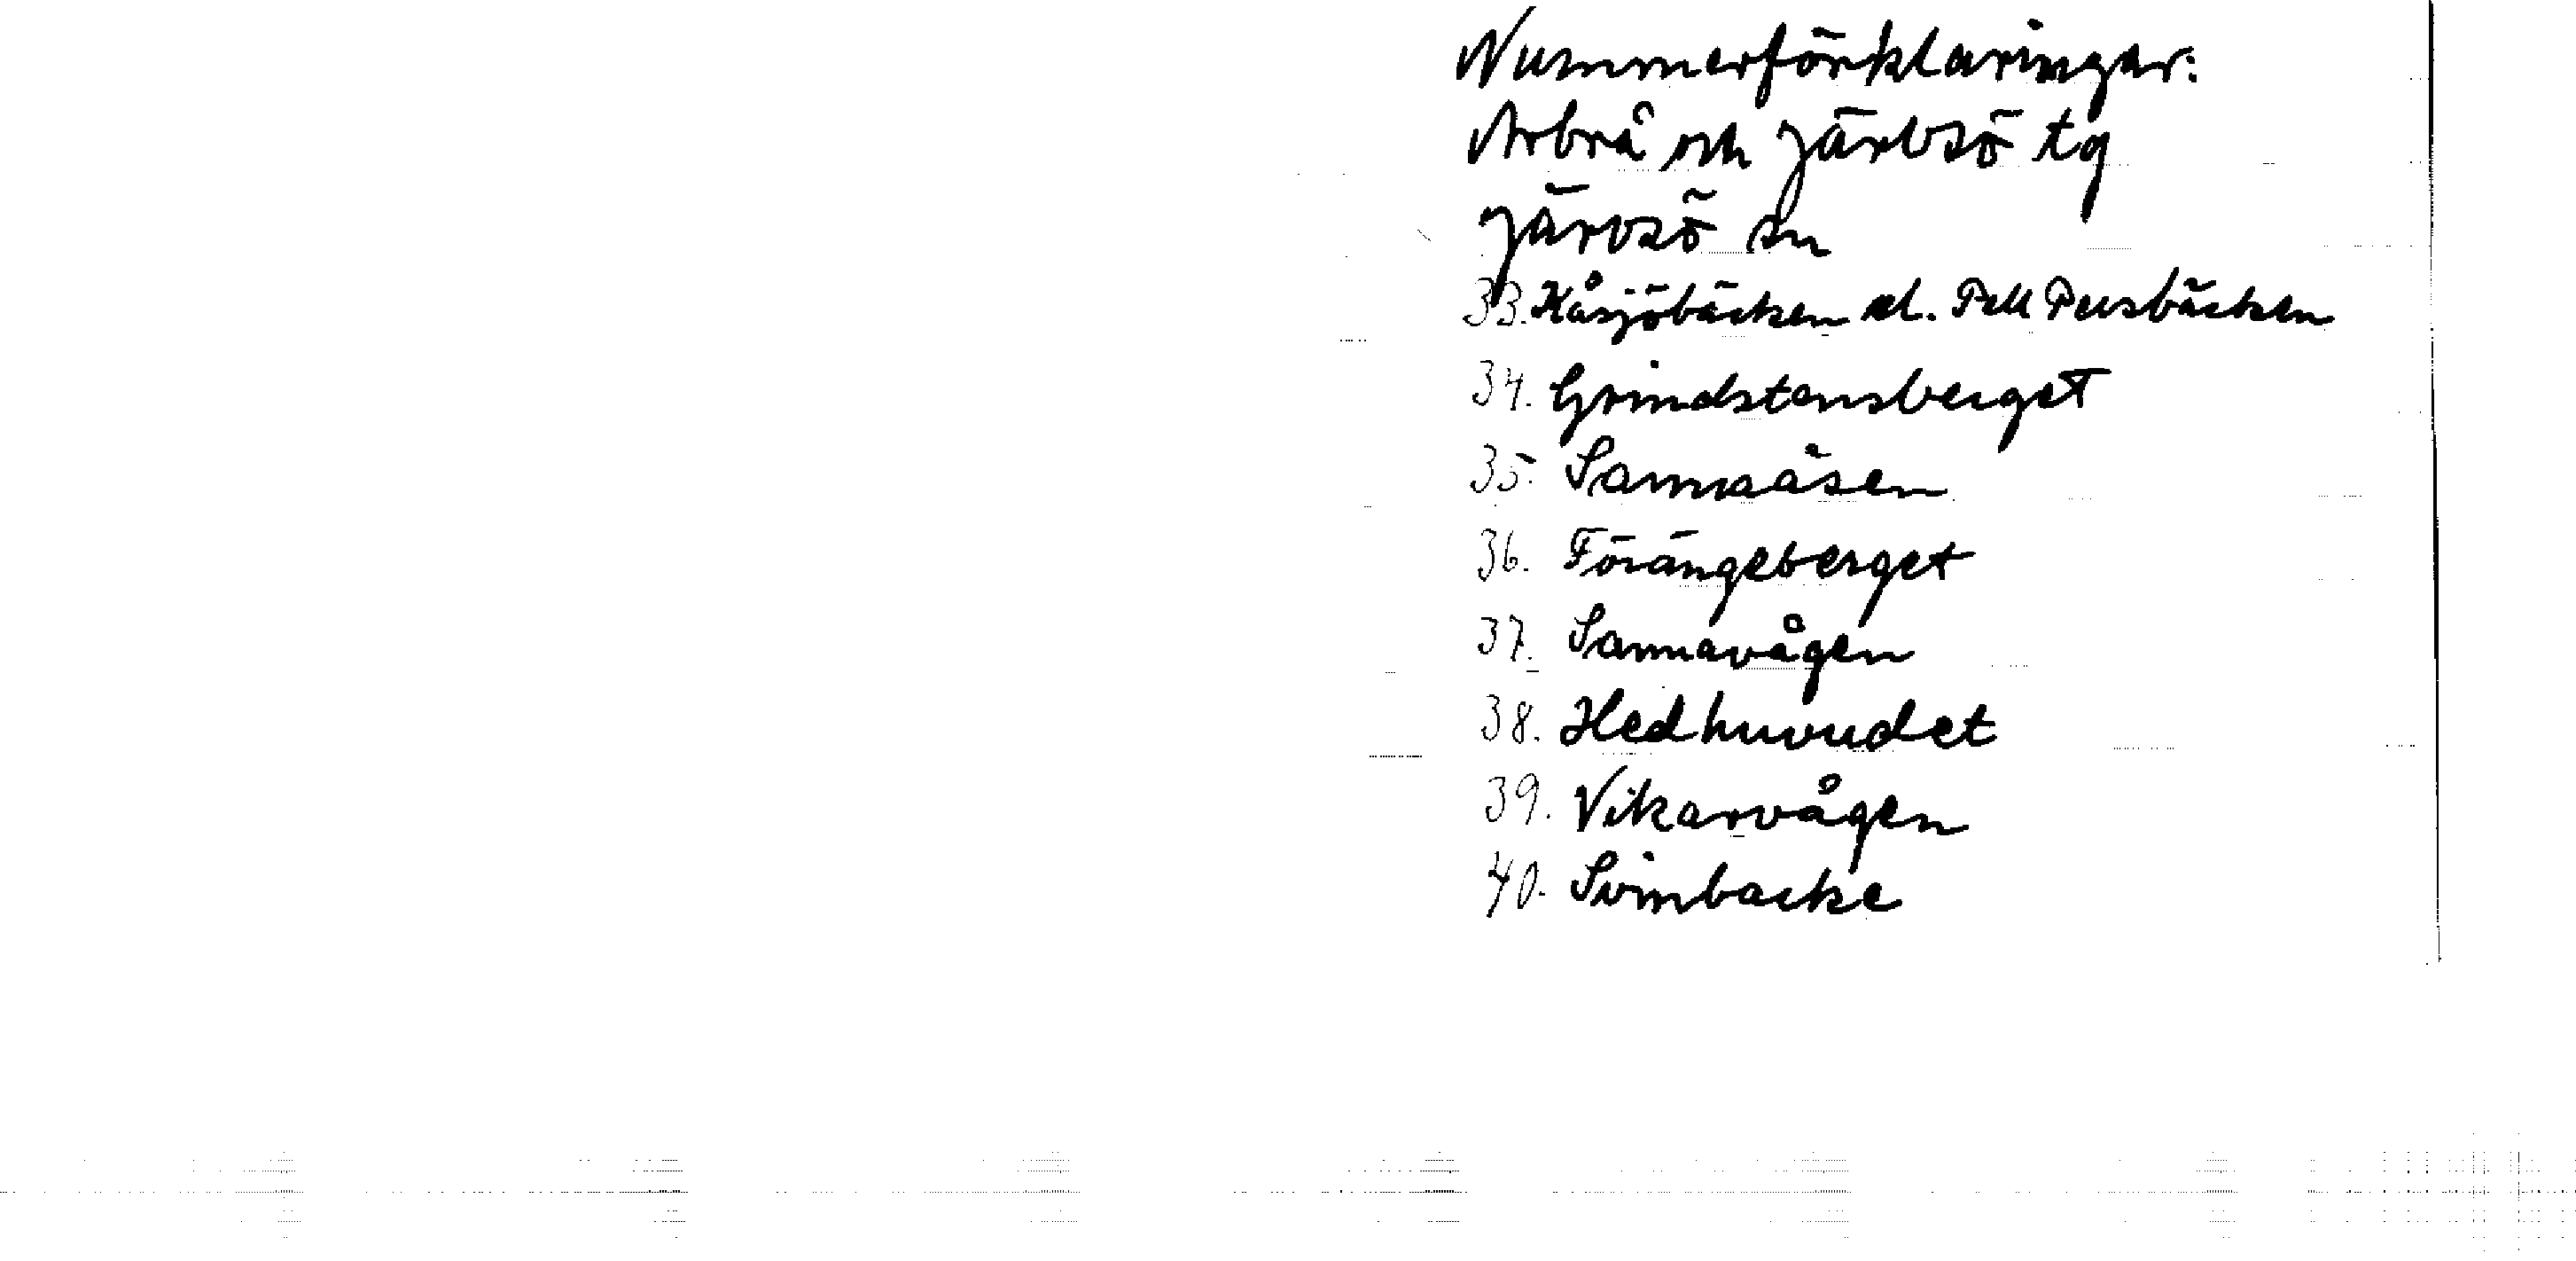 Nummerförklaringar:
Arbrå och Järvsö tg
Järvsö sn
33. Kåsjöbäcken el. Pell Persbäcken
34. Grindstensberget
35. Sannaåsen
36. Förängeberget
37. Sannavågen
38. Hedhuvudet
39. Vikarvågen
40. Svinbacke